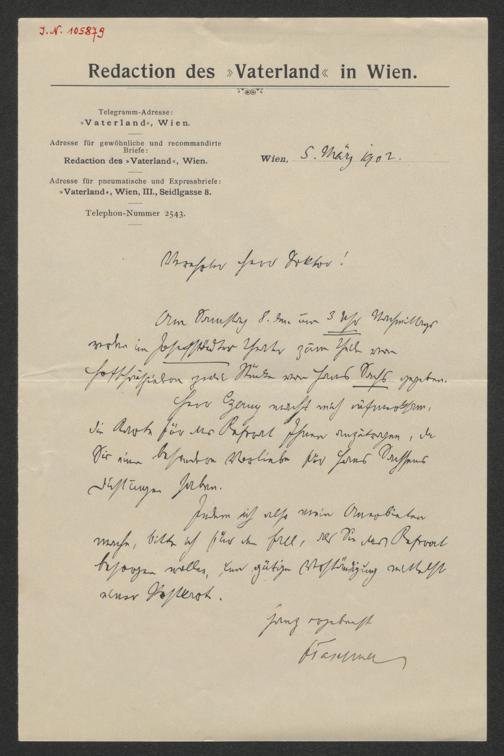 J.N. 105879
Redaction des »Vaterland« in Wien.
Telegramm-Adresse:
»Vaterland«, Wien.
Adresse für gewöhnliche und recommandirte
Briefe:
Redaction des »Vaterland«, Wien.
Adresse für pneumatische und Expressbriefe:
»Vaterland«, Wien, III., Seidlgasse 8.
Telephon-Nummer 2543.
Wien, 5. März 1902.
Verehrter Herr Doktor!
Am Samstag 8. den um 3 Uhr Nachmittags
werden im Josefstädter Theater zum Theil von
Hofschauspielern Stücke von Hans Sachs gegeben.
Herr Czerny macht mich aufmerksam,
die Karte für das Referat Ihnen anzutragen, da
Sie eine besondere Vorliebe für Hans Sachsens
Dichtungen haben.
Indem ich also mein Anerbieten
mache, bitte ich für den Fall, daß Sie das Referat
besorgen wollen, um gütige Verständigung mittelst
einer Postkarte.
Ganz ergebenst